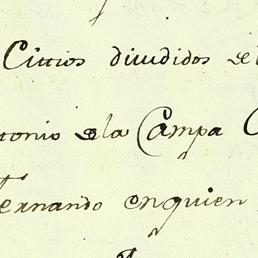 Cittios diuididos de
tonio de la Campa
ernando en quien